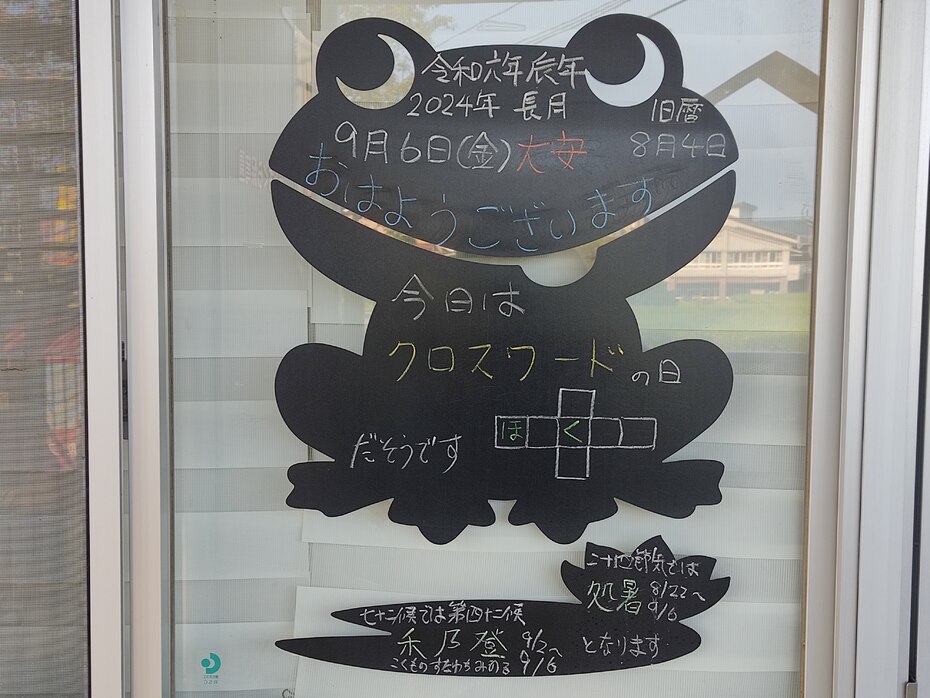 令和六年辰年
2024年 長月
9月6日(金)大安
旧暦
8月4日
おはようございます
今日は
クロスワードの日
ほ く
だそうです
二十四節気では
処暑 8/22〜
9/6
七十二候では第四十二候
禾乃登 9/2〜
こくものすなわちみのる 9/6
となります